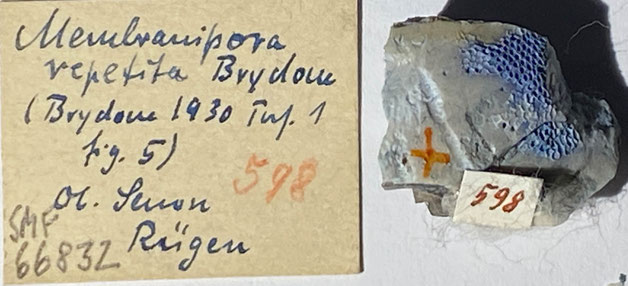 Membranipora
repetita Brydone
(Brydone 1930 Taf. 1
fig. 5)
598
Ob. Senon
Rügen
SMF
66832
598